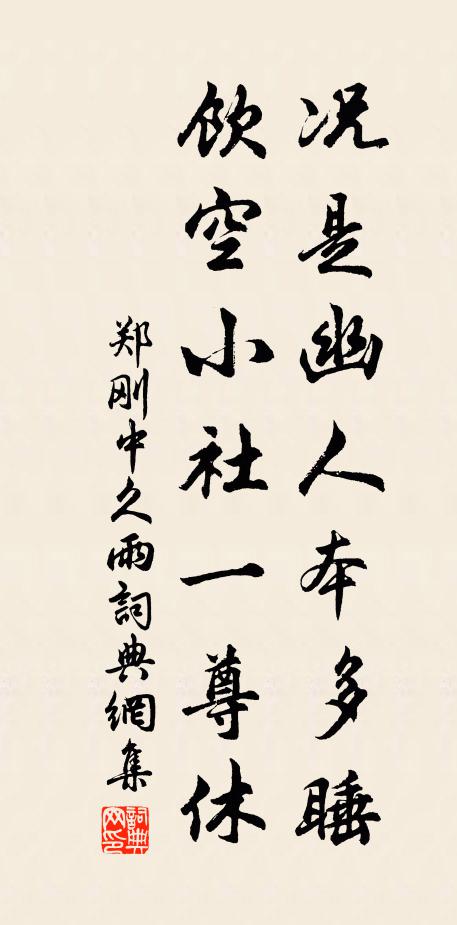 况是幽人本多睡
饮空小社一尊休
郑刚中久雨詞典網集
詞典網印